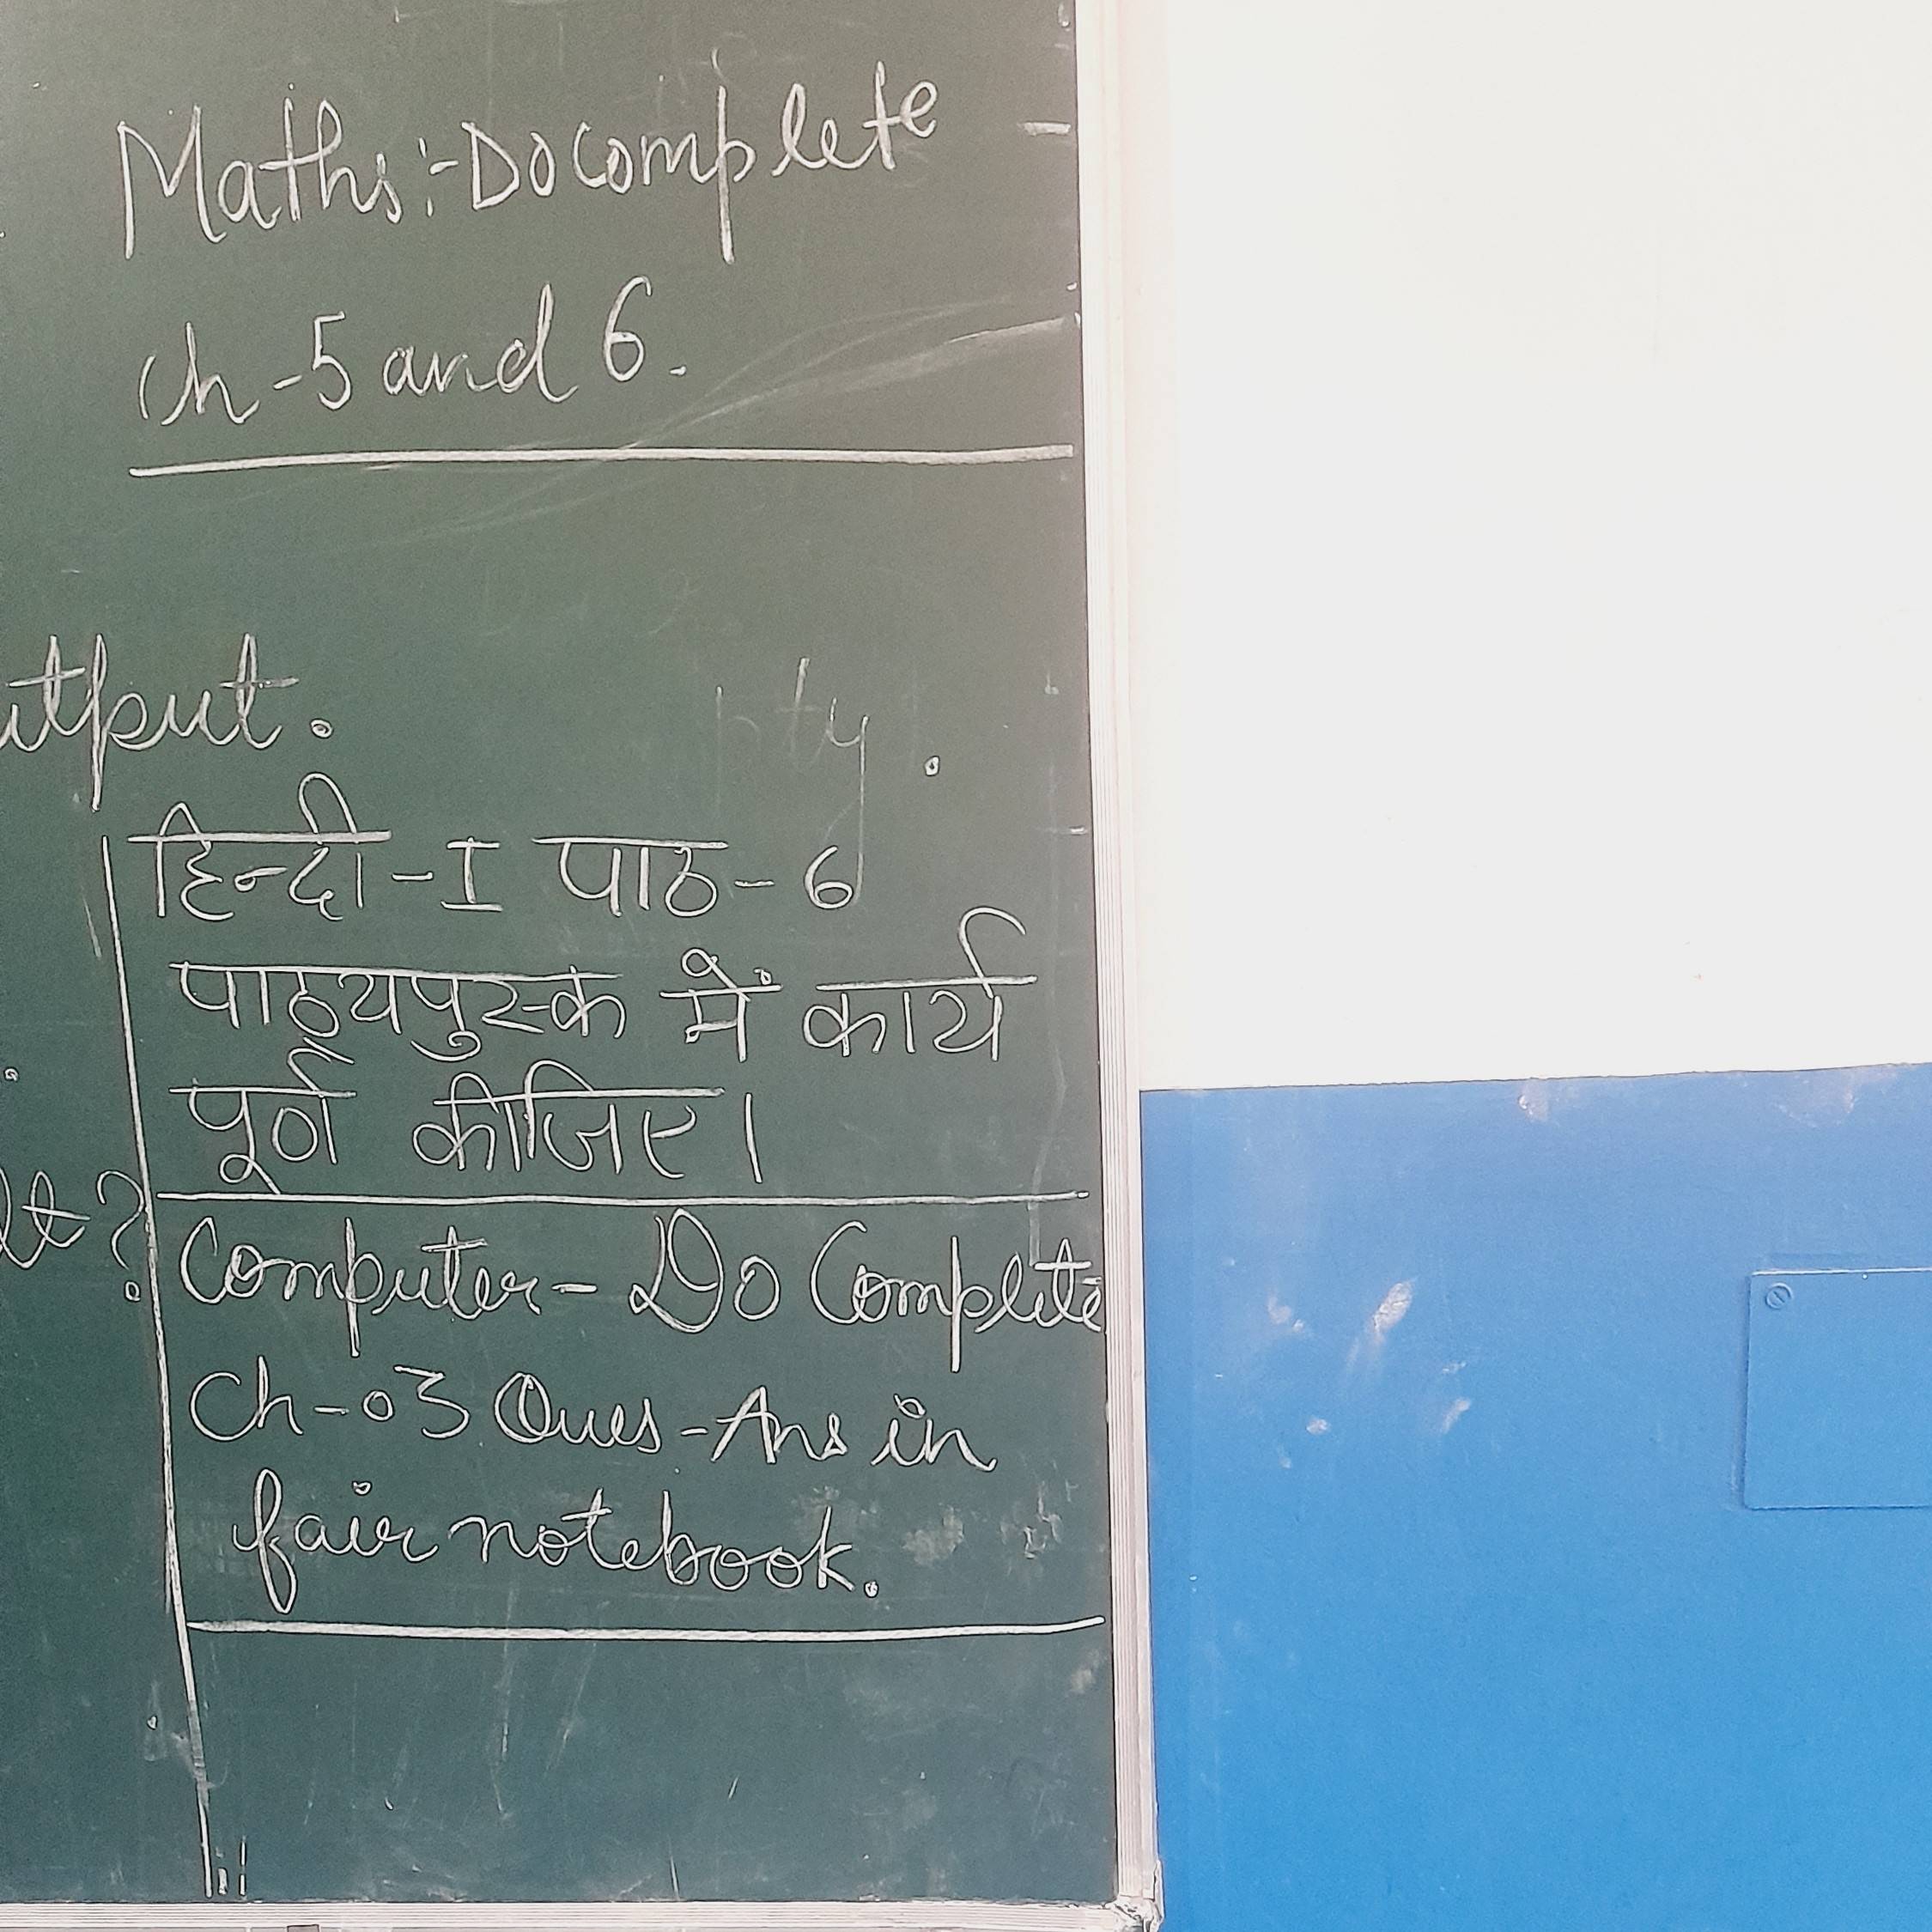 Maths:- Do complete
ch - 5 and 6.
हिन्दी - I पाठ - 6
पाठ्यपुस्क में कार्य
पूर्ण कीजिए।
Computer - Do Complete
Ch - 03 Ques - Ans in
fair notebook.